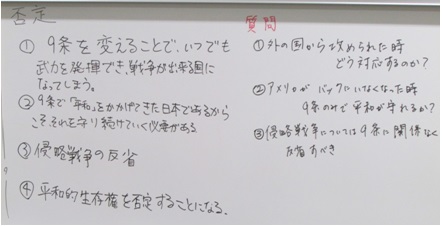 否定
① 9条を変えることで、いつでも
武力を発揮でき、戦争が出来る国に
なってしまう。
② 9条で「平和」をかかげてきた日本であるから
こそそれを守り続けていく必要がある
③ 侵略戦争の反省
④ 平和的生存権を否定することになる。
質問
① 外の国から攻められた時
どう対応するのか?
② アメリカがバックにいなくなった時
9条のみで平和が守れるか?
③ 侵略戦争については9条に関係なく
反省すべき